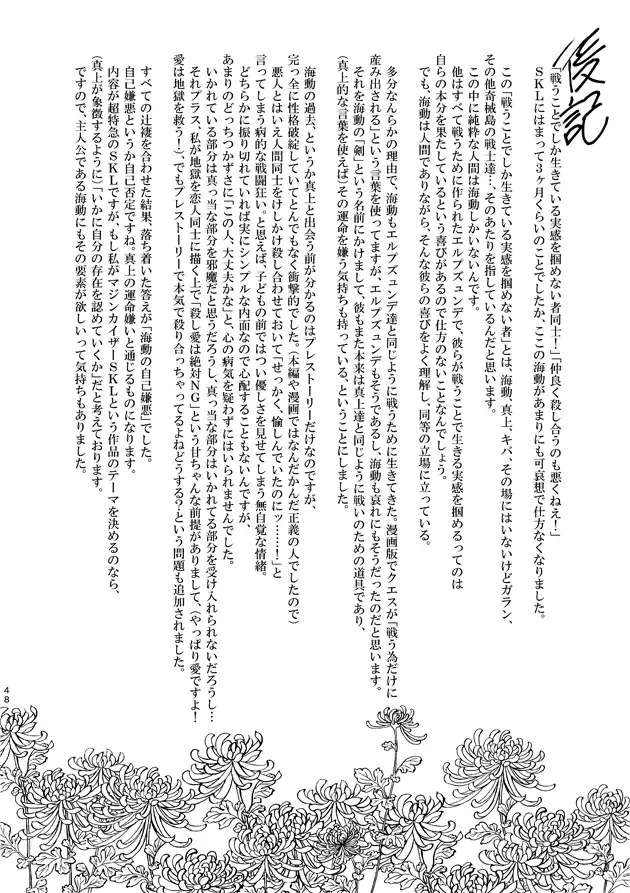 後記
「戦うことでしか生きている実感を掴めない者同士！」「仲良く殺し合うのも悪くねえ！」
SKLにはまって3ヶ月くらいのことでしたか、ここの海動があまりにも可哀想で仕方なくなりました。
この「戦うことでしか生きている実感を掴めない者」とは、海動、真上、キバ、その場にはいないけどガラン、
その他奇械島の戦士達…、そのあたりを指しているんだと思います。
この中に純粋な人間は海動しかいないんです。
他はすべて戦うために作られたエルプズュンデで、彼らが戦うことで生きる実感を掴めるってのは
自らの本分を果たしているという喜びがあるので仕方のないことなんでしょう。
でも、海動は人間でありながら、そんな彼らの喜びをよく理解し、同等の立場に立っている。
多分なんらかの理由で、海動もエルプズュンデ達と同じように戦うために生きてきた。漫画版でクエスが「戦う為だけに
産み出される」という言葉を使ってますが、エルプズュンデもそうであるし、海動も哀れにもそうだったのだと思います。
それを海動の「剣」という名前にかけまして、彼もまた本来は真上達と同じように戦いのための道具であり、
（真上的な言葉を使えば）その運命を嫌う気持ちも持っている、ということにしました。
海動の過去、というか真上と出会う前が分かるのはプレストーリーだけなのですが、
完っ全に性格破綻していてとんでもなく衝撃的でした。（本編や漫画ではなんだかんだ正義の人でしたので）
悪人とはいえ人間同士をけしかけ殺し合わせておいて「せっかく、愉しんでいたのにッ……！」と
言ってしまう病的な戦闘狂い。と思えば、子どもの前ではつい優しさを見せてしまう無自覚な情緒。
どちらかに振り切れていれば実にシンプルな内面なので心配することもないんですが、
あまりのどっちつかずさに「この人、大丈夫かな」と、心の病気を疑わずにはいられませんでした。
いかれている部分は真っ当な部分を邪魔だと思うだろうし、真っ当な部分はいかれてる部分を受け入れられないだろうし…
それプラス、私が地獄を恋人同士に描く上で「殺し愛は絶対NG」という甘ちゃんな前提がありまして、（やっぱり愛ですよ！
愛は地獄を救う！）、でもプレストーリーで本気で殺り合っちゃってるよねどうする？という問題も追加されました。
すべての辻褄を合わせた結果、落ち着いた答えが「海動の自己嫌悪」でした。
自己嫌悪というか自己否定ですね。真上の運命嫌いと通じるものになります。
内容が超特急のSKLですが、もし私がマジンカイザーSKLという作品のテーマを決めるのなら、
（真上が象徴するように）「いかに自分の存在を認めていくか」だと考えております。
ですので、主人公である海動にもその要素が欲しいって気持ちもありました。
48